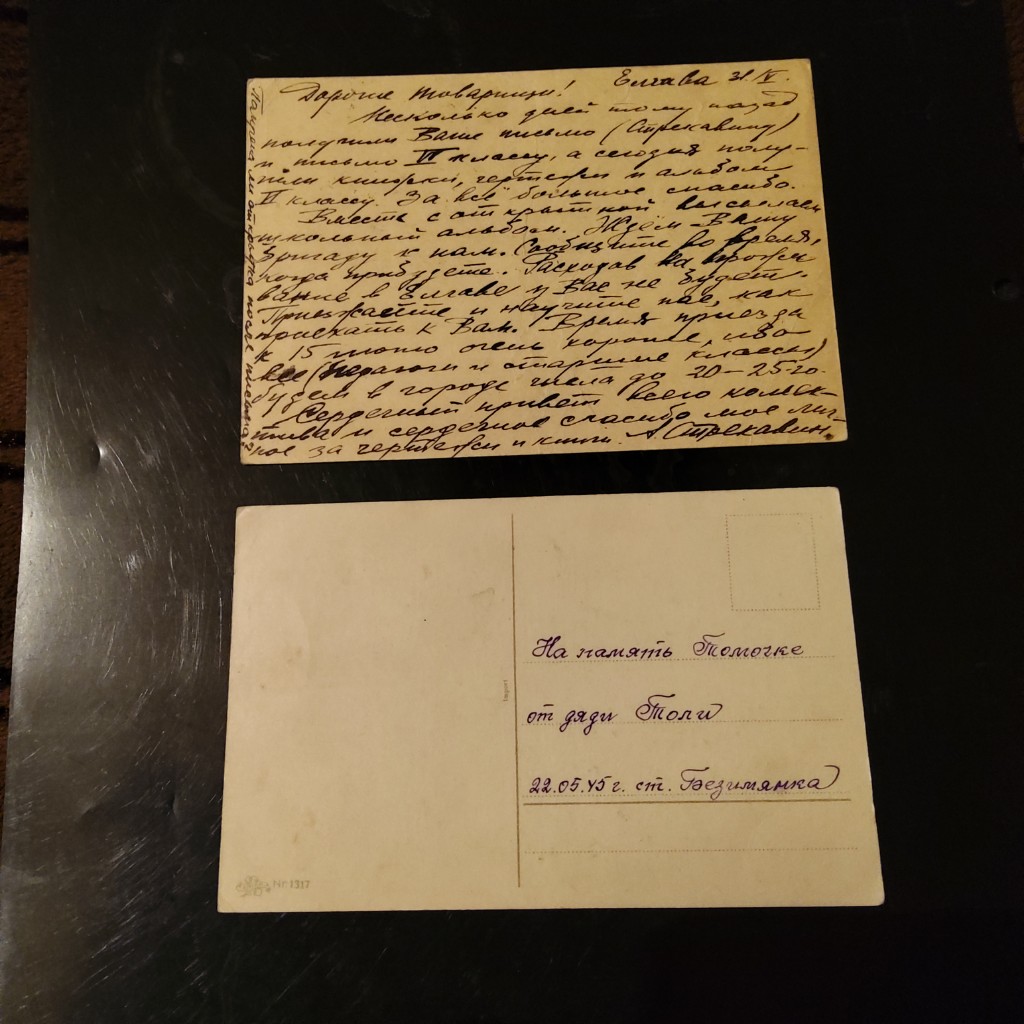 Дорогие товарищи! Елгава 31.IV.
Несколько дней тому назад
получили Ваше письмо (Стрекавину)
и письмо VI классу, а сегодня полу-
чили книжки, чертежи и альбом
II классу. За всё большое спасибо.
Вместе с открыткой высылаем
школьный альбом. Ждём Вашу
бригаду к нам. Сообщите во время,
когда прибудете. Расходов на прожи
вание в Елгаве у Вас не будет.
Приезжайте и научите нас, как
приехать к Вам. Время приезда
к 15 очень хорошее, ибо
все (педагоги и старшие классы)
будем в городе числа до 20-25-го.
Сердечный привет всего коллек-
тива и сердечное спасибо мое лич-
ное за чертежи и книги. А. Стрекавин.
открытка после
На память Томочке
от дяди Толи
22.05.45 г. ст. Безимянка
Import
Nr 1317